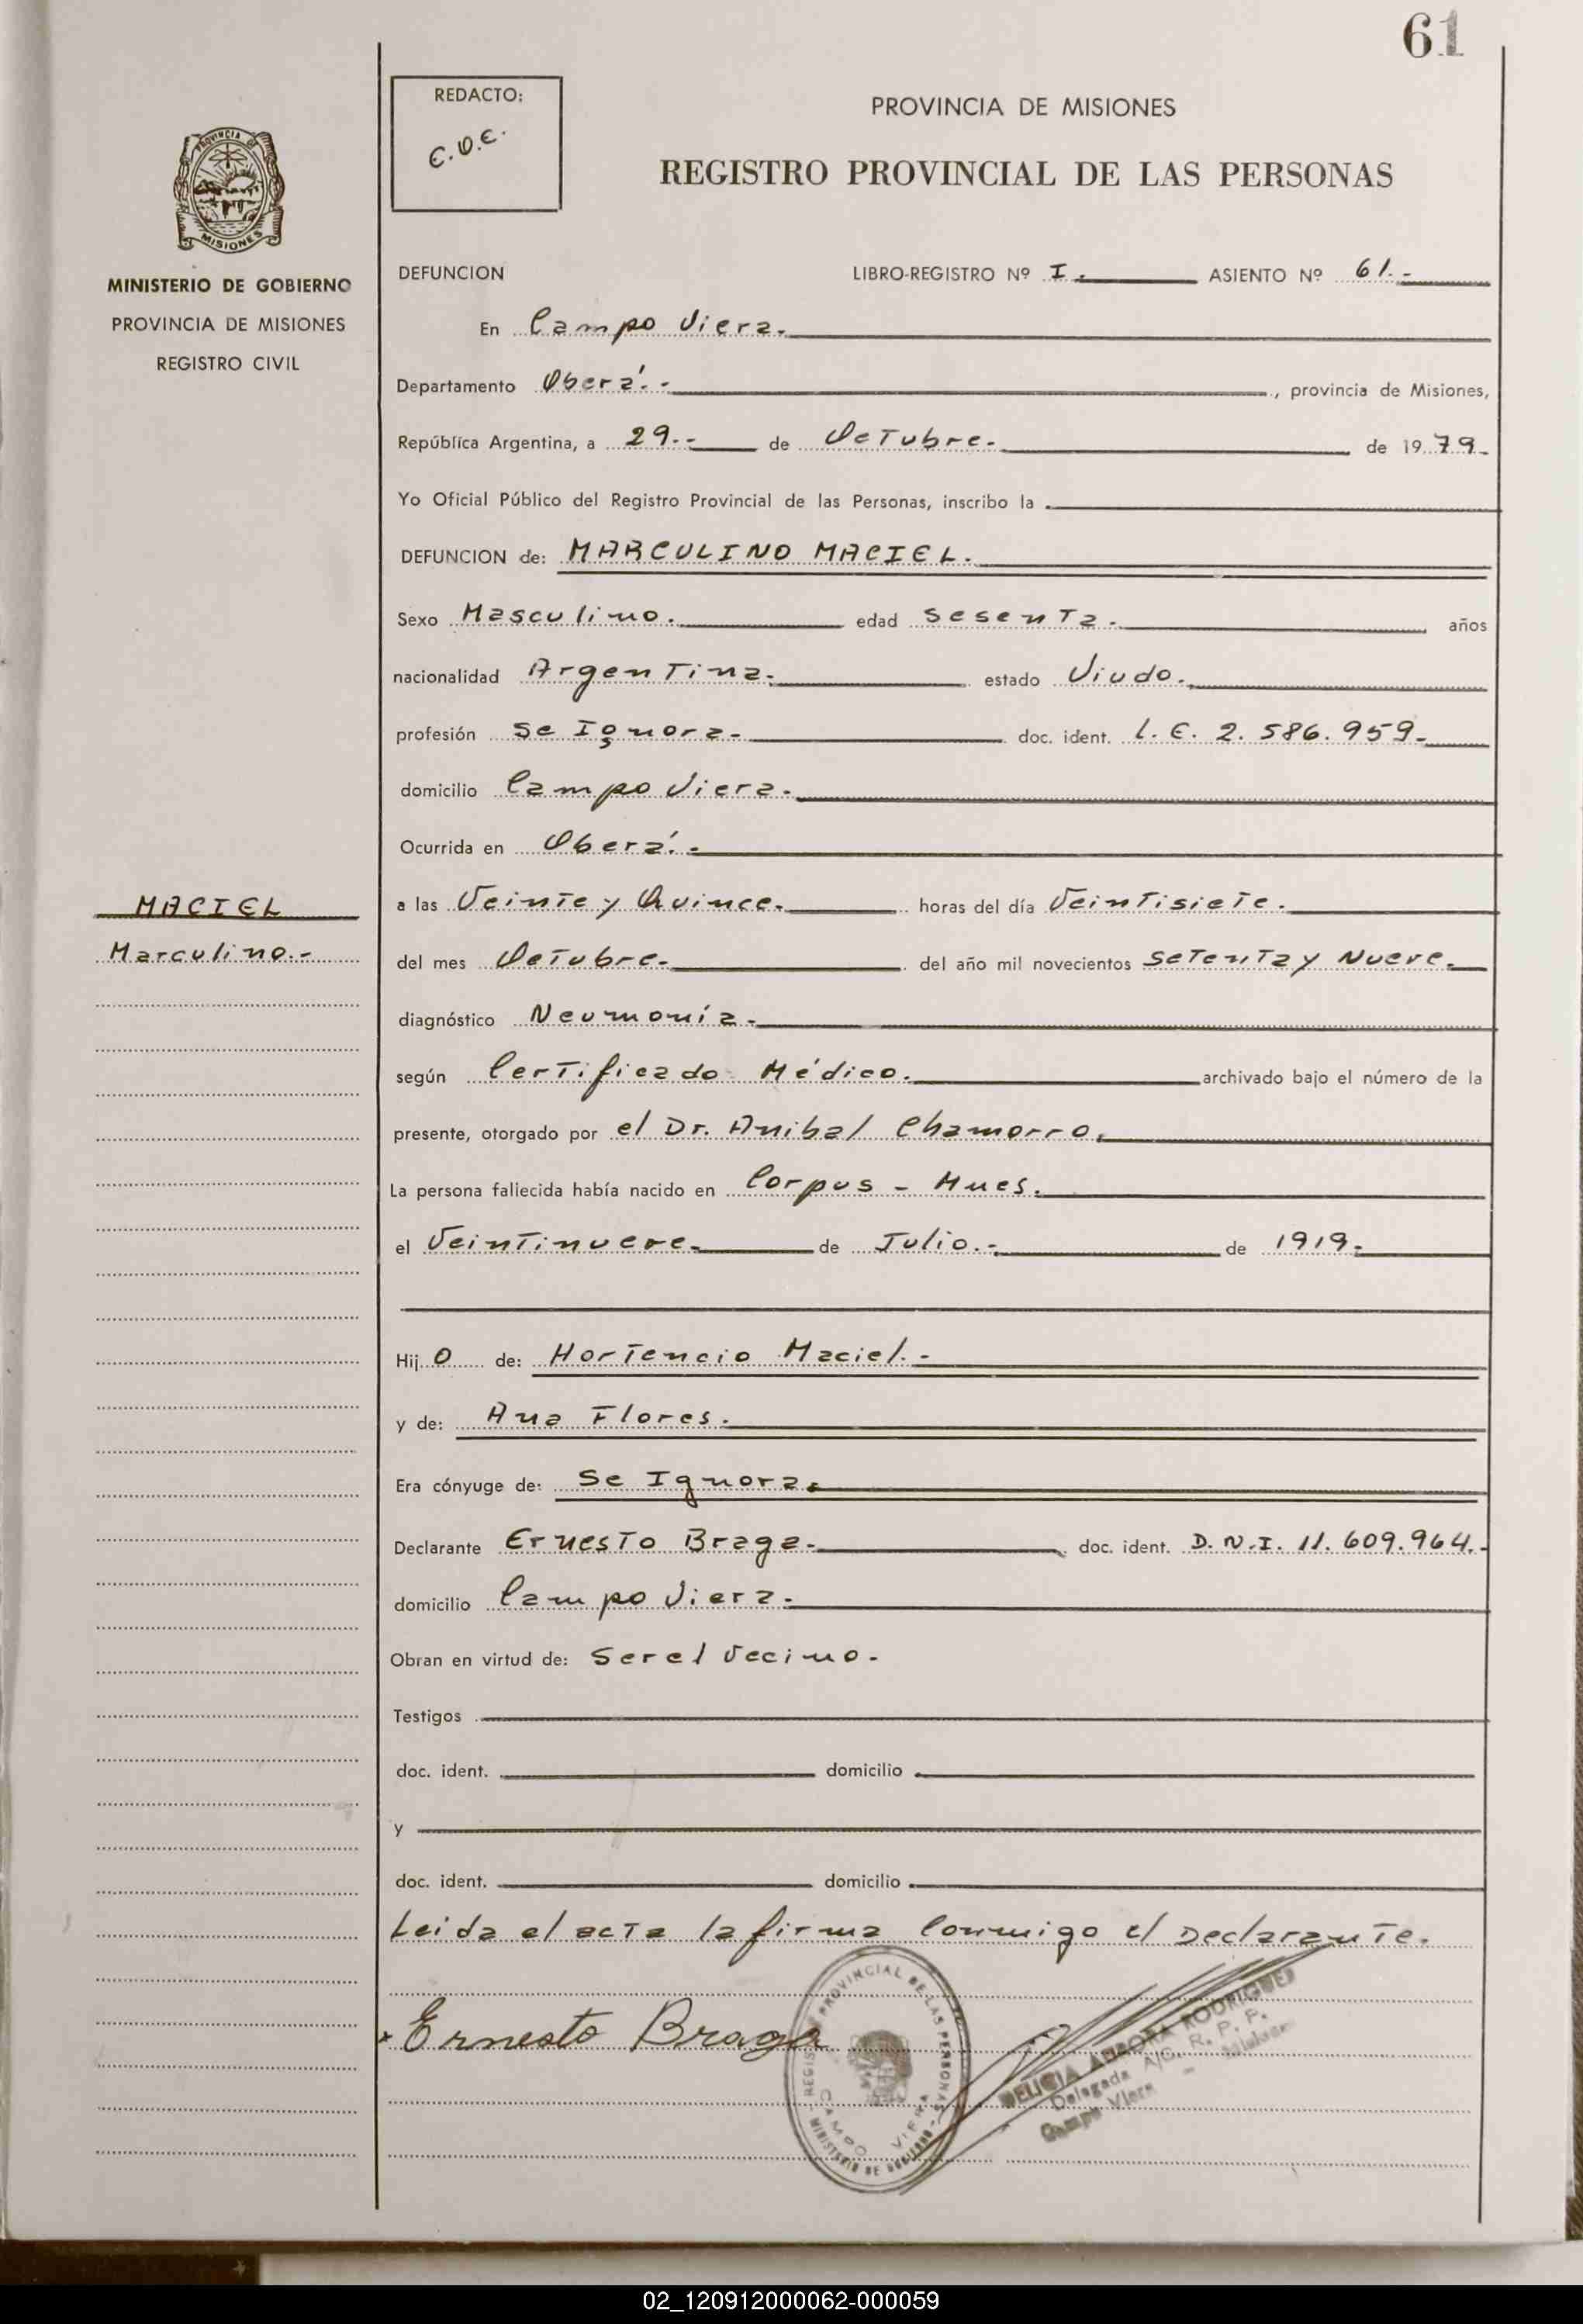 61
REDACTO:
C.O.E.
PROVINCIA DE MISIONES
REGISTRO PROVINCIAL DE LAS PERSONAS
PROVINCIA DE
MISIONES
MINISTERIO DE GOBIERNO
PROVINCIA DE MISIONES
REGISTRO CIVIL
DEFUNCION LIBRO-REGISTRO Nº I.- ASIENTO Nº 61.-
En Campo Viera.-
Departamento Oberá.-, provincia de Misiones,
República Argentina, a 29.- de Octubre.- de 1979.-
Yo Oficial Público del Registro Provincial de las Personas, inscribo la
DEFUNCION de: MARCULINO MACIEL.-
Sexo Masculino.- edad Sesenta.- años
nacionalidad Argentina.- estado Viudo.-
profesión Se Ignora.- doc. ident. L.E. 2.586.959.-
domicilio Campo Viera.-
Ocurrida en Oberá.-
a las Veinte y Quince.- horas del día Veintisiete.-
MACIEL
Marculino.-
del mes Octubre.- del año mil novecientos Setenta y Nueve.-
diagnóstico Neumonía.-
según Certificado Médico.- archivado bajo el número de la
presente, otorgado por el Dr. Anibal Chamorro.-
La persona fallecida había nacido en Corpus - Mnes.-
el Veintinueve.- de Julio.- de 1919.-
Hijo de: Hortencio Maciel.-
y de: Ana Flores.-
Era cónyuge de: Se Ignora.-
Declarante Ernesto Braga.- doc. ident. D.N.I. 11.609.964.-
domicilio Campo Viera.-
Obran en virtud de: Ser el Vecino.-
Testigos
doc. ident. domicilio
y
doc. ident. domicilio
Leida el acta la firma Conmigo el Declarante.
Ernesto Braga
REGISTRO PROVINCIAL DE LAS PERSONAS
CAMPO VIERA
MINISTERIO DE GOBIERNO
DELICIA AURORA RODRIGUEZ
Delegada A/C. R. P. P.
Campo Viera - Misiones
02_120912000062-000059